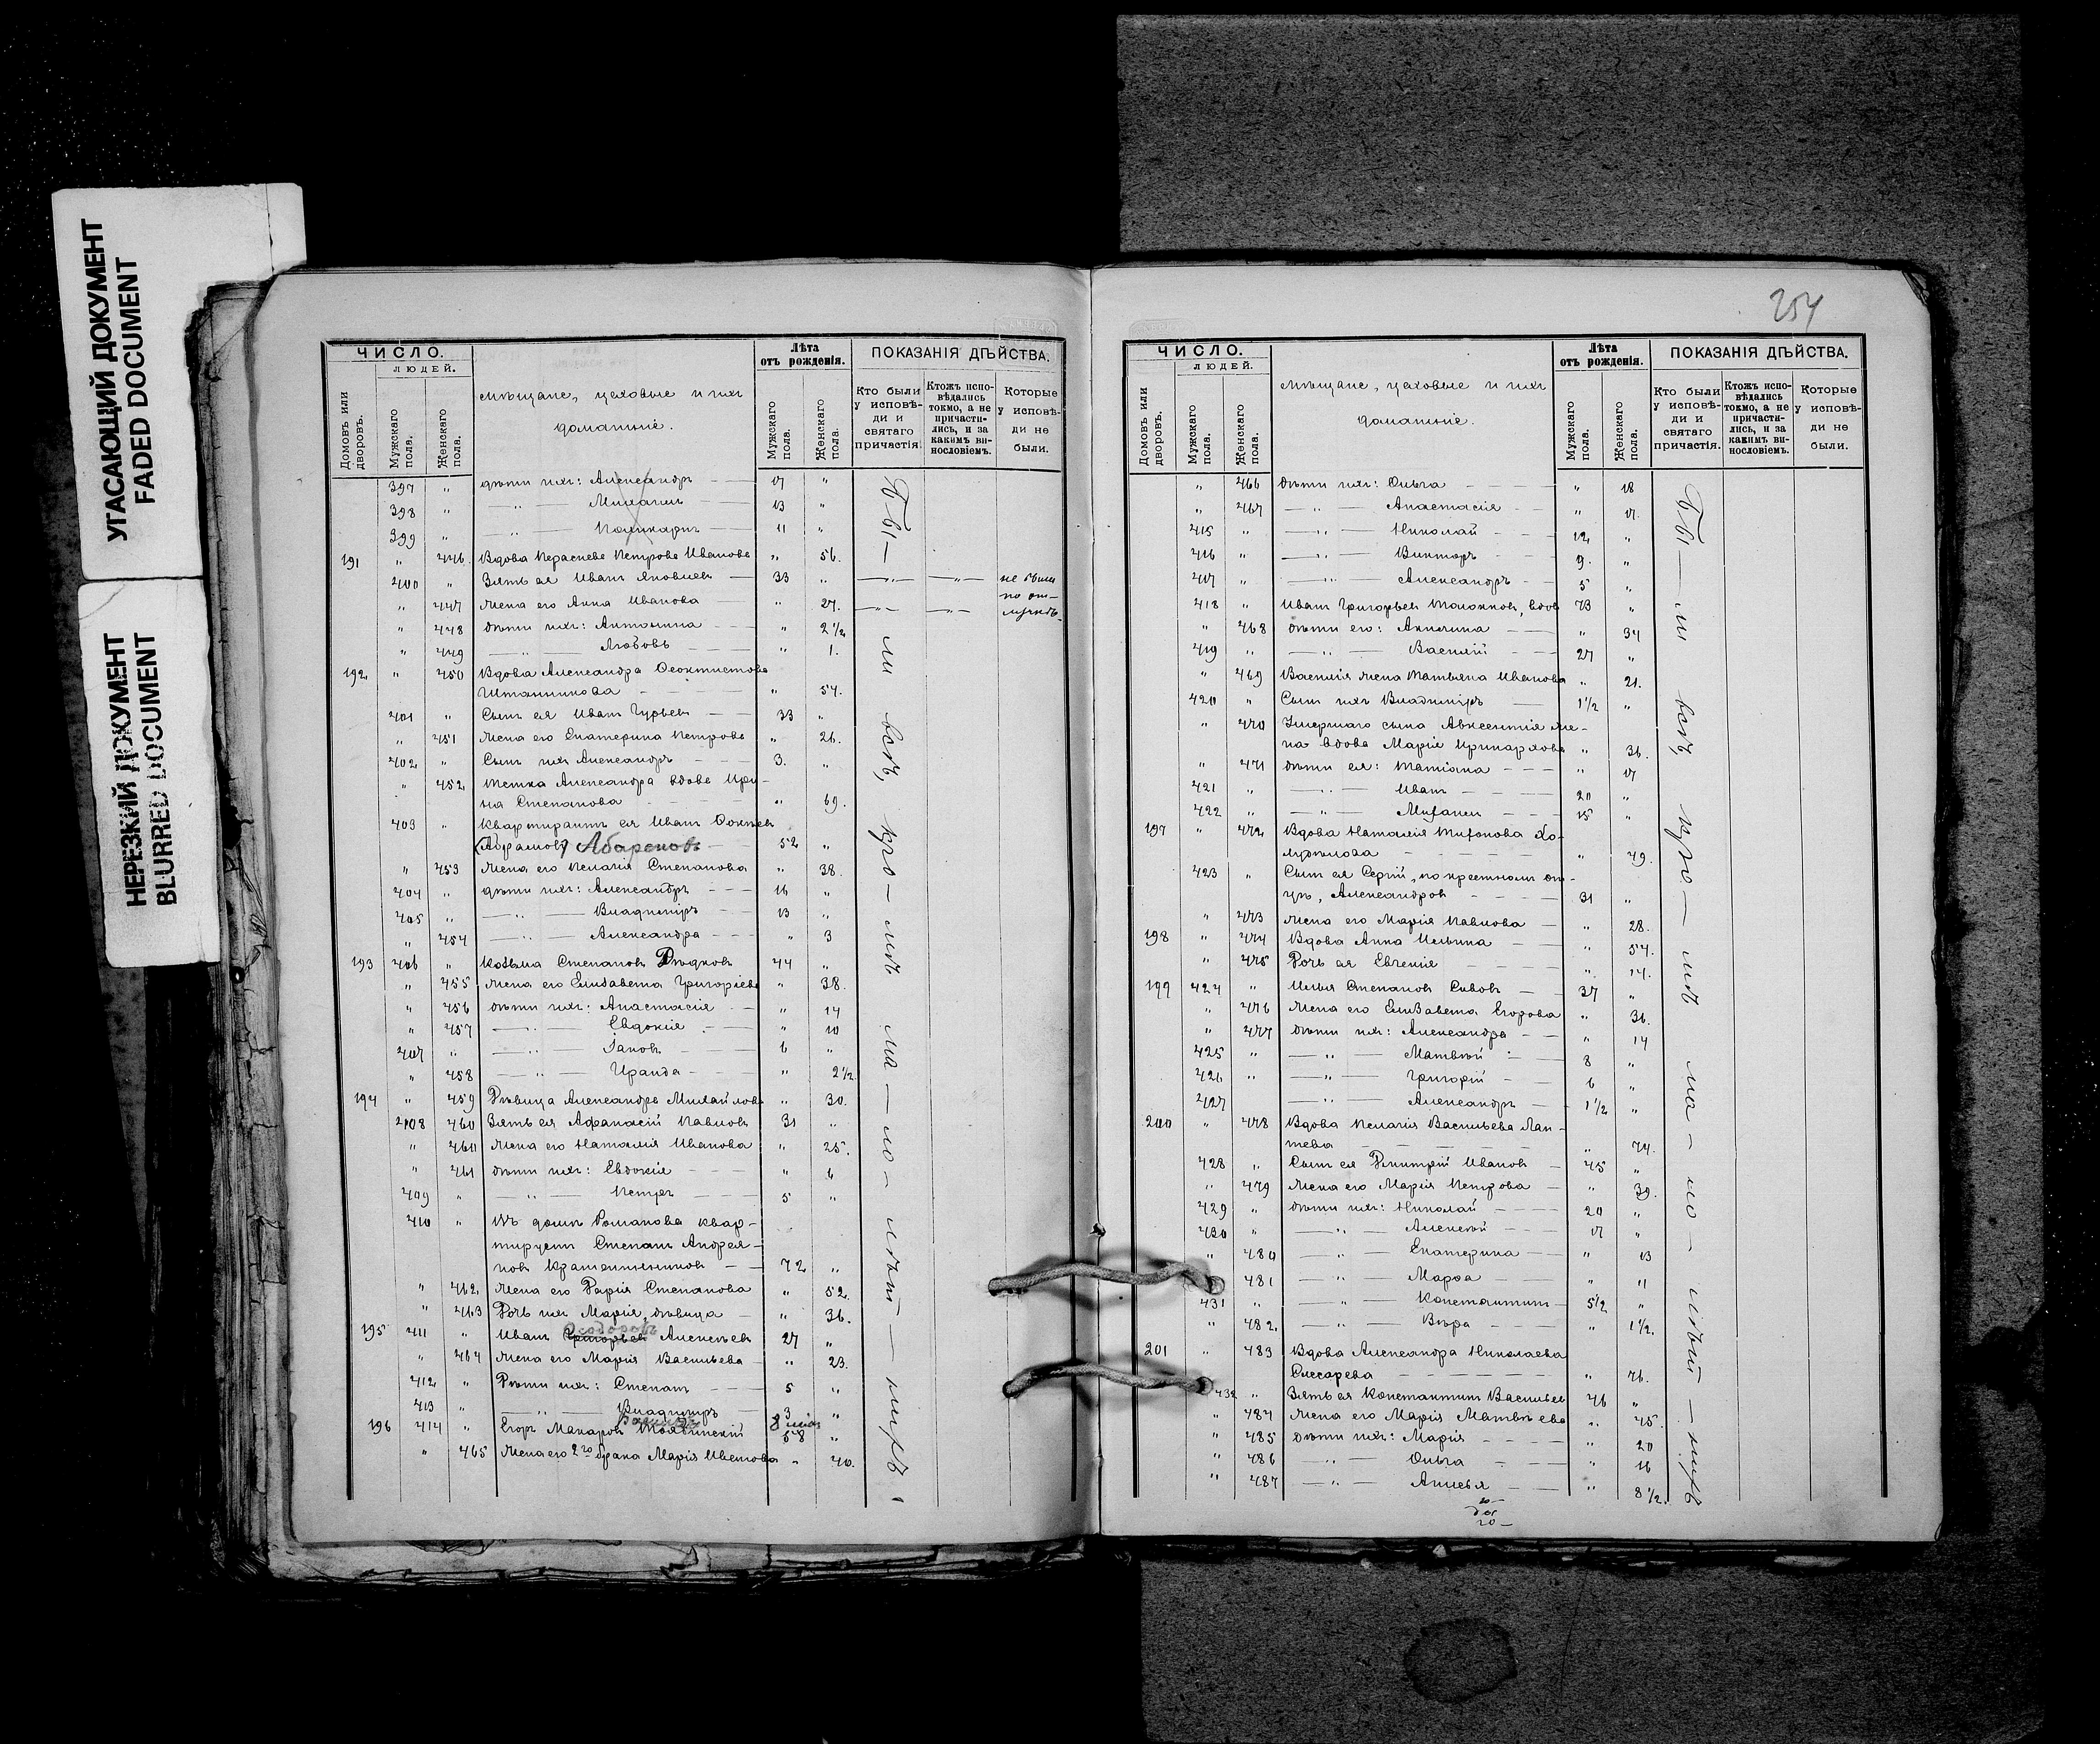 УГАСАЮЩИЙ ДОКУМЕНТ
FADED DOCUMENT
НЕРЕЗКИЙ ДОКУМЕНТ
BLURRED DOCUMENT
ЧИСЛО.
ЛЮДЕЙ.
Домовъ или дворовъ.
Мужскаго пола.
Женскаго пола.
Мѣщане, цеховые и ихъ
домашніе.
Лѣта
отъ рожденія.
Мужскаго пола.
Женскаго пола.
ПОКАЗАНІЯ ДѢЙСТВА.
Кто были у исповѣ-ди и святаго причастія.
Ктожъ испо-вѣдались токмо, а не причасти-лись, и за какимъ ви-нословіемъ.
Которые у исповѣ-ди не были.
397 " дѣти ихъ: Александръ 17 "
398 " —"— Михаилъ 13 "
399 " —"— Поликарпъ 11 "
191 " 446 Вдова Перасковѣ Петрова Иванова " 56.
400 " Зять ея Иванъ Яковлевъ 33 " —"— —"— не были
" 447 Жена его Анна Иванова " 27. —"— —"— по от-лучкѣ.
" 448 дѣти ихъ: Антонина " 2 1/2
" 449 —"— Любовь " 1.
192 " 450 Вдова Александра Ѳеоктистова
Штанникова " 57.
401 " Сынъ ея Иванъ Гурьевъ 33 "
" 451 Жена его Екатерина Петрова " 26.
402 " Сынъ ихъ Александръ 3. "
" 452 Тетка Александра вдова Ири-
на Степанова " 69.
403 " Квартирантъ ея Иванъ Ѳокіевъ
(Абрамовъ) Абареновъ 52 "
" 453 Жена его Пелагія Степанова " 38.
404 " дѣти ихъ: Александръ 16 "
405 " —"— Владиміръ 13 "
" 454 —"— Александра " 3
193 406 " Козьма Степановъ Рѣдковъ 44 "
" 455 Жена его Елизавета Григоріева " 38.
" 456 дѣти ихъ: Анастасія " 14
" 457 —"— Евдокія " 10
407 " —"— Іаковъ 6 "
" 458 —"— Ираида " 2 1/2
194 " 459 Дѣвица Александра Михайлова " 30.
408 460 Зять ея Афанасій Павловъ 31 "
" 460 Жена его Наталія Иванова " 25.
" 461 дѣти ихъ: Евдокія " 6
409 " —"— Петръ 5 "
410 " Въ домѣ Романова квар-
тируетъ Степанъ Андрея-
новъ Крашенинниковъ 72 "
" 462 Жена его Дарія Степанова " 52.
" 463 Дочь ихъ Марія, дѣвица " 36.
Ѳеодоровъ
195 411 " Иванъ Григорьевъ Алексѣевъ 27 "
" 464 Жена его Марія Васильева " 23.
412 " Дѣти ихъ: Степанъ 5 "
413 " —"— Владиміръ 3 "
Василій 8 мѣс
196 414 " Егоръ Макаровъ 58 "
" 465 Жена его 2го брака Марія Ивстова " 40.
Бы-ли всѣ, кро-мѣ ма-ло-лѣт-нихъ
254
ЧИСЛО.
ЛЮДЕЙ.
Домовъ или дворовъ.
Мужскаго пола.
Женскаго пола.
Мѣщане, цеховые и ихъ
домашніе.
Лѣта
отъ рожденія.
Мужскаго пола.
Женскаго пола.
ПОКАЗАНІЯ ДѢЙСТВА.
Кто были у исповѣ-ди и святаго причастія.
Ктожъ испо-вѣдались токмо, а не причасти-лись, и за какимъ ви-нословіемъ.
Которые у исповѣ-ди не были.
" 466 дѣти ихъ: Ольга " 18
" 467 —"— Анастасія " 17.
415 " —"— Николай 12 "
416 " —"— Викторъ 9. "
417 " —"— Александръ 5 "
418 " Иванъ Григорьевъ Толокновъ, вдов 73 "
" 468 дѣти его: Акилина " 34
419 " —"— Василій 27 "
" 469 Василія жена Татьяна Иванова " 21.
420 " Сынъ ихъ Владиміръ 1 1/2 "
" 470 Умершаго сына Авксентія же-
на вдова Марія Принархова " 36.
" 471 дѣти ея: Татіана " 17
421 " —"— Иванъ 20 "
422 " —"— Михаилъ 15 "
197 " 472 Вдова Наталія Тифонова Хо-
" 49.
423 " Сынъ ея Сергій, по крестномъ от-
цѣ, Александровъ 31 "
" 473 Жена его Марія Павлова " 28.
198 " 474 Вдова Анна Ильина " 54.
" 475 Дочь ея Евгенія " 14.
199 424 " Илья Степановъ Сивовъ 37 "
" 476 Жена его Елизавета Егорова " 36.
" 477 дѣти ихъ: Александра " 14
425 " —"— Матвѣй 8 "
426 " —"— Григорій 6 "
427 —"— Александръ 1 1/2 "
200 " 478 Вдова Пелагія Васильева Лап-
тева " 74.
428 " Сынъ ея Дмитрій Ивановъ 45 "
" 479 Жена его Марія Петрова " 39.
429 " дѣти ихъ: Николай 20 "
430 " —"— Алексѣй 17 "
" 480 —"— Екатерина " 13
" 481 —"— Марѳа " 11
431 " —"— Константинъ 5 1/2 "
" 482. —"— Вѣра " 1 1/2.
201 " 483 Вдова Александра Николаева
Слесарева " 76.
432 " Зять ея Константинъ Васильев 46 "
" 484 Жена его Марія Матвѣева " 45.
" 485 дѣти ихъ: Марія " 20
" 486 —"— Ольга " 16
" 487 —"— Анисья " 8 1/2.
Бы-ли всѣ, кро-мѣ ма-ло-лѣт-нихъ